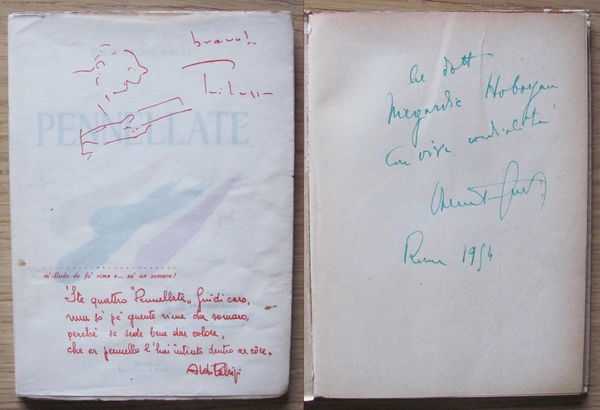 bravo!!
Trilussa
PENNELLATE
m'illudo de fa' rime e... so' un somaro!
'Ste quattro "Pennellate„ Guidi caro,
nun so' pe' gnente rime da somaro,
perchè se vede bene dar colore,
che er pennello l'hai intinto dentro ar còre.
Aldo Fabrizi
Al dott
Hoboyan
Con viva cordialità
Roma 1954